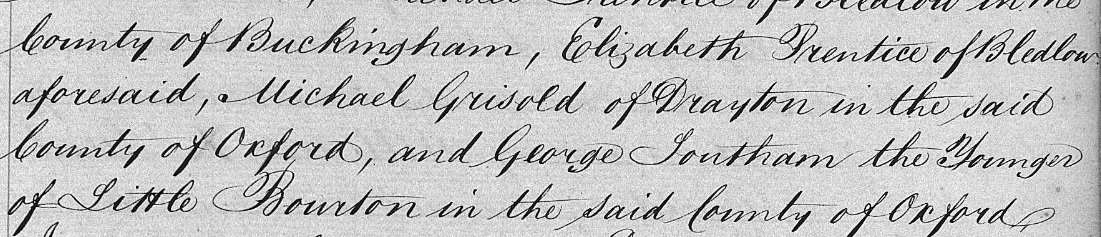 of Bledlow in the
County of Buckingham, Elizabeth Prentice of Bledlow
aforesaid, Michael Grisold of Drayton in the said
County of Oxford, and George Southam the Younger
of Little Bourton in the said County of Oxford